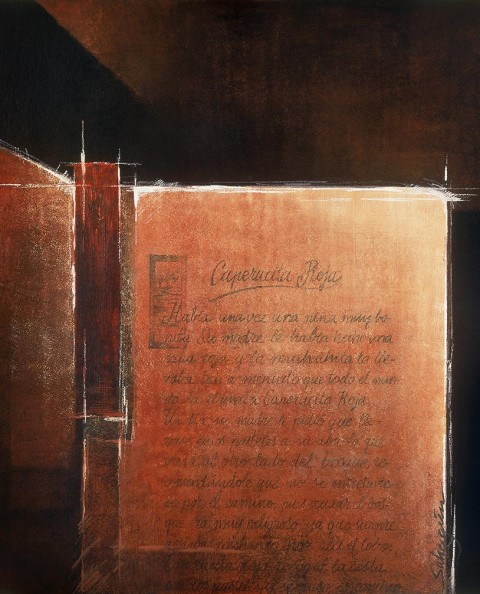 Caperucita Roja
Había una vez una niña muy bo-
nita. Su madre le había hecho una
capa roja y la muchachita la lle-
vaba tan a menudo que todo el mun-
do la llamaba Caperucita Roja.
Un día, su madre le pidió que lle-
vase unos pasteles a su abuela que
vivía al otro lado del bosque, re-
comendándole que no se entretuvie-
se por el camino, pues cruzar el bos-
que era muy peligroso, ya que siempre
andaba acechando por allí el lobo.
Caperucita Roja recogió la cesta